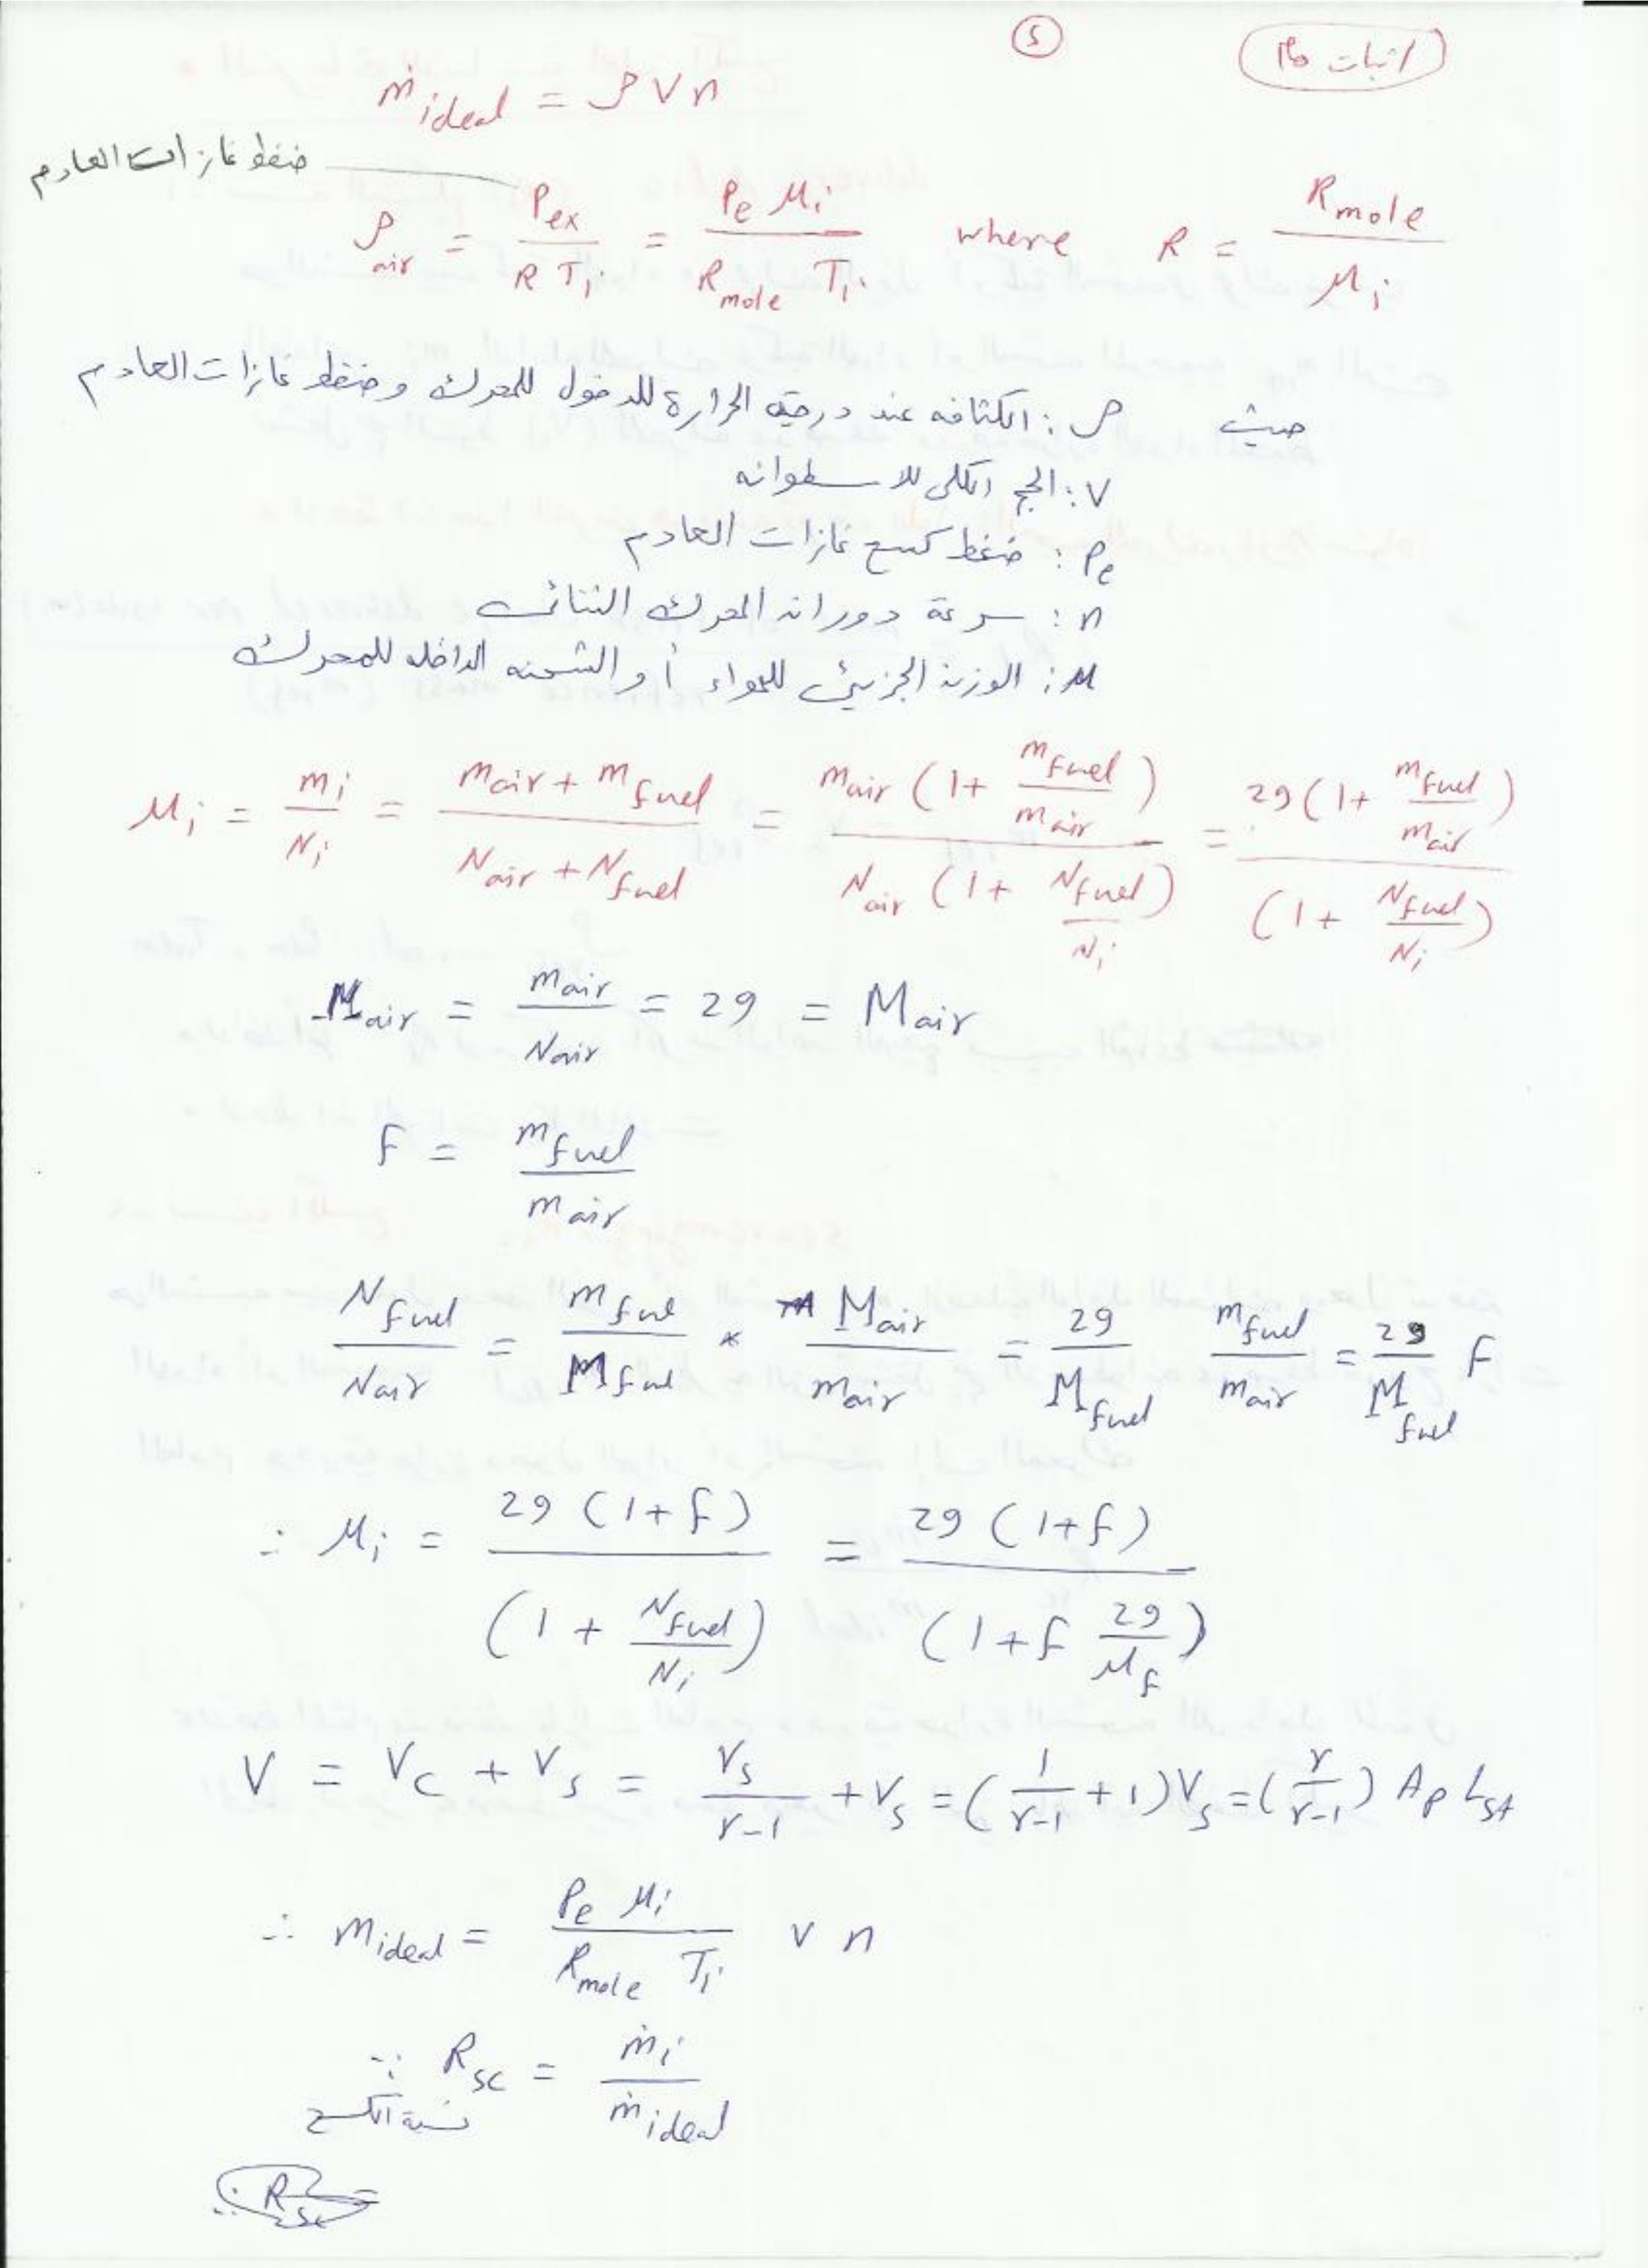 اثبات هام
٥
ṁ ideal = ρ V n
ضغط غازات العادم
ρ air = P ex / R Ti = Pe μi / R mole Ti where R = R mole / μi
حيث ρ : الكثافه عند درجة الحرارة للدخول للمحرك وضغط غازات العادم
V : الحجم الكلى للاسطوانه
Pe : ضغط كسح غازات العادم
n : سرعة دوران المحرك الثنائى
μ : الوزن الجزيئى للهواء أو الشحنه الداخله للمحرك
μi = mi / Ni = (m air + m fuel) / (N air + N fuel) = m air (1 + m fuel / m air) / N air (1 + N fuel / Ni) = 29 (1 + m fuel / m air) / (1 + N fuel / Ni)
M air = m air / N air = 29 = M air
F = m fuel / m air
N fuel / N air = m fuel / M fuel * M air / m air = 29 / M fuel m fuel / m air = 29 / M fuel F
∴ μi = 29 (1 + F) / (1 + N fuel / Ni) = 29 (1 + F) / (1 + F 29 / μf)
V = Vc + Vs = Vs / r-1 + Vs = (1 / r-1 + 1) Vs = (r / r-1) Ap Lst
∴ m ideal = Pe μi / R mole Ti V n
∵ Rsc = ṁi / ṁ ideal
نسبة الكسح